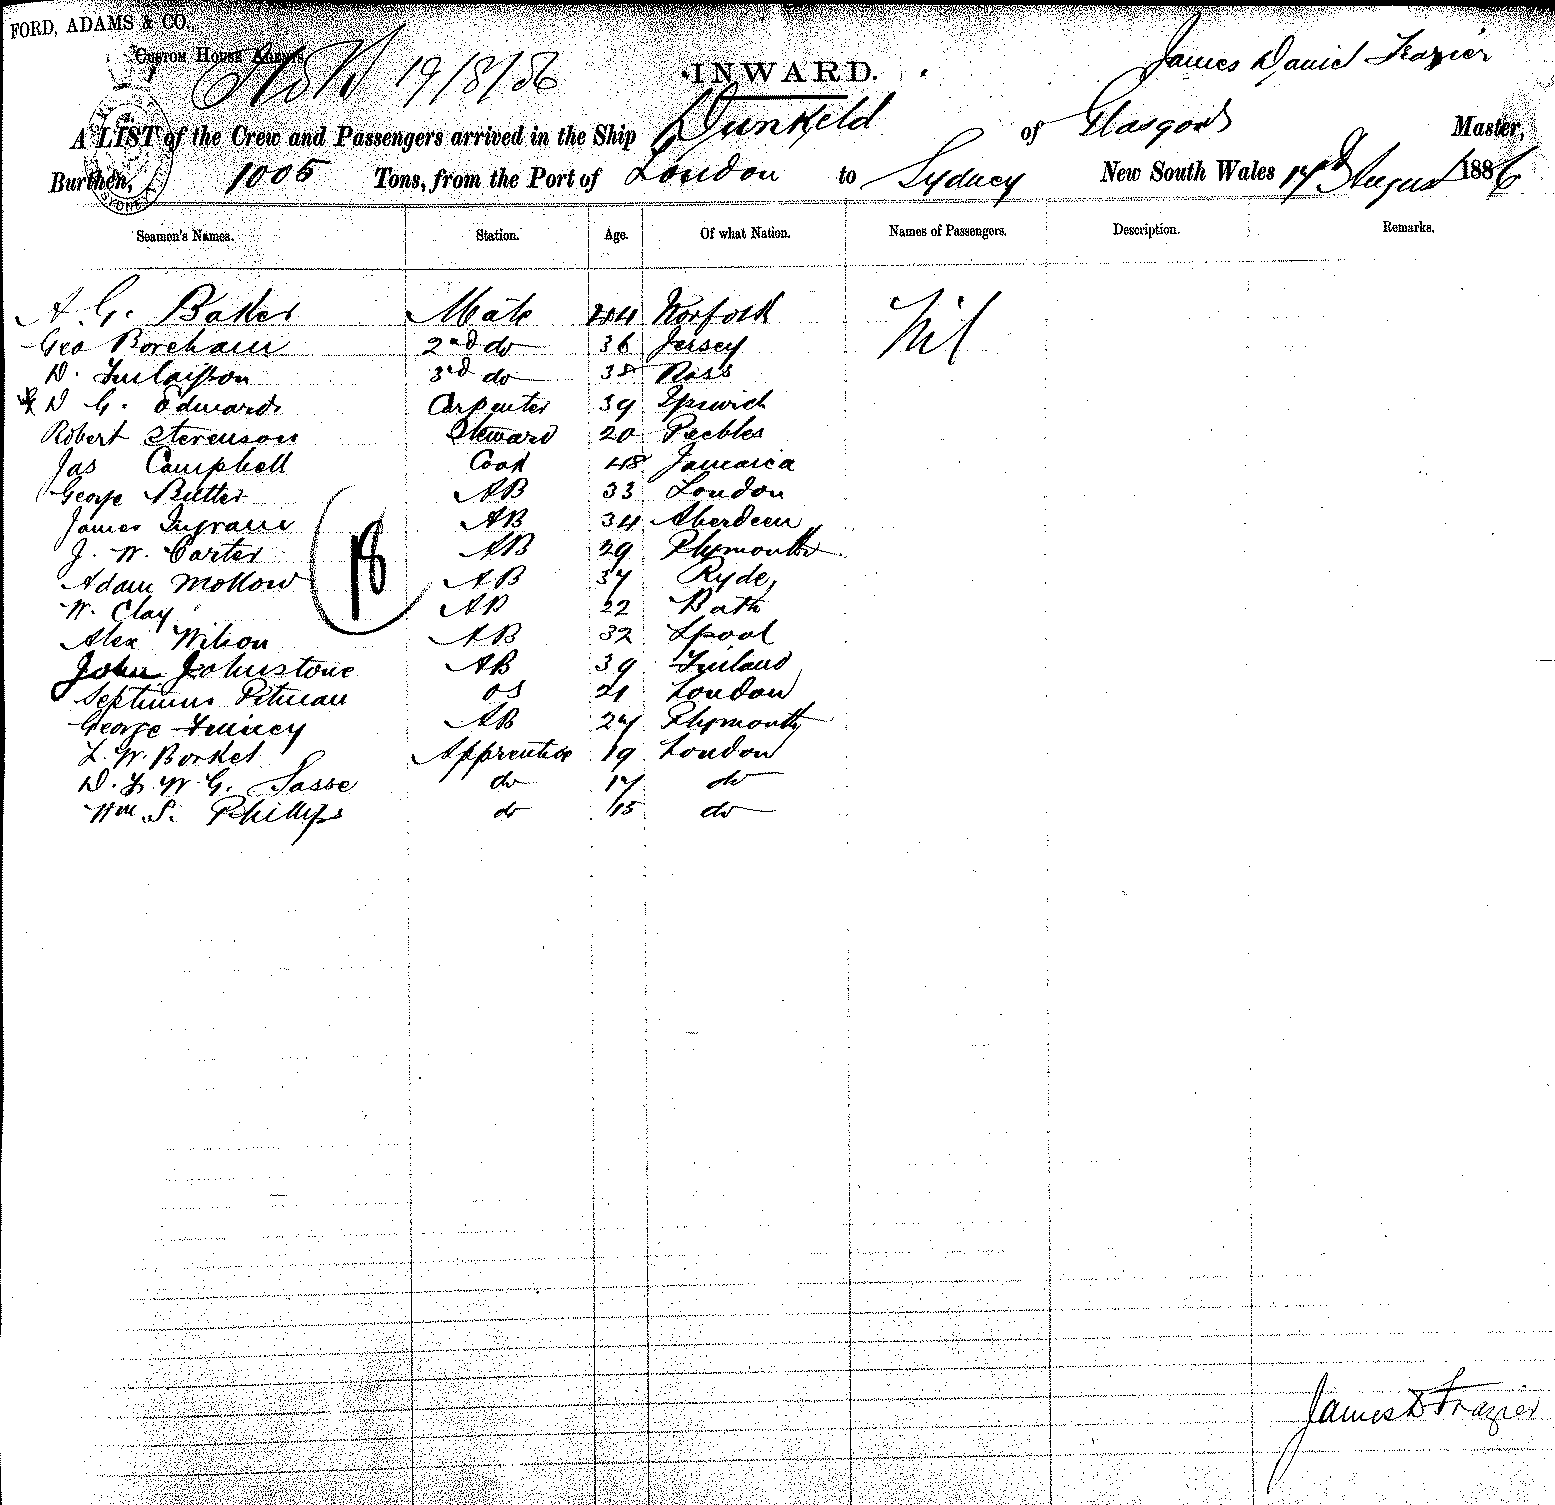 FORD, ADAMS & CO.,
Custom House Agents
19/8/86
INWARD.
James David Frazier
A LIST of the Crew and Passengers arrived in the Ship Dunkeld of Glasgow Master,
Burthen, 1005 Tons, from the Port of London to Sydney New South Wales 17th August 1886
Seamen's Names. Station. Age. Of what Nation. Names of Passengers. Description. Remarks.
A. G. Baker Mate 44 Norfolk Nil
Geo Boreham 2nd do 36 Jersey
D. Finlayson 3rd do 38 Ross
D G. Edwards Carpenter 39 Ipswich
Robert Stevenson Steward 20 Peebles
Jas Campbell Cook 48 Jamaica
George Butter AB 33 London
James Ingram AB 34 Aberdeen
J. W. Carter AB 29 Plymouth
18
Adam Mollow AB 37 Ryde
W. Clay AB 22 Bath
Alex Wilson AB 32 Lpool
John Johnstone AB 39 Finland
Septimus Pitman OS 21 London
George AB 27 Plymouth
L. W. Borket Apprentice 19 London
D. L W. G. Sasse do 17 do
Wm S. Phillips do 15 do
James D Frazier